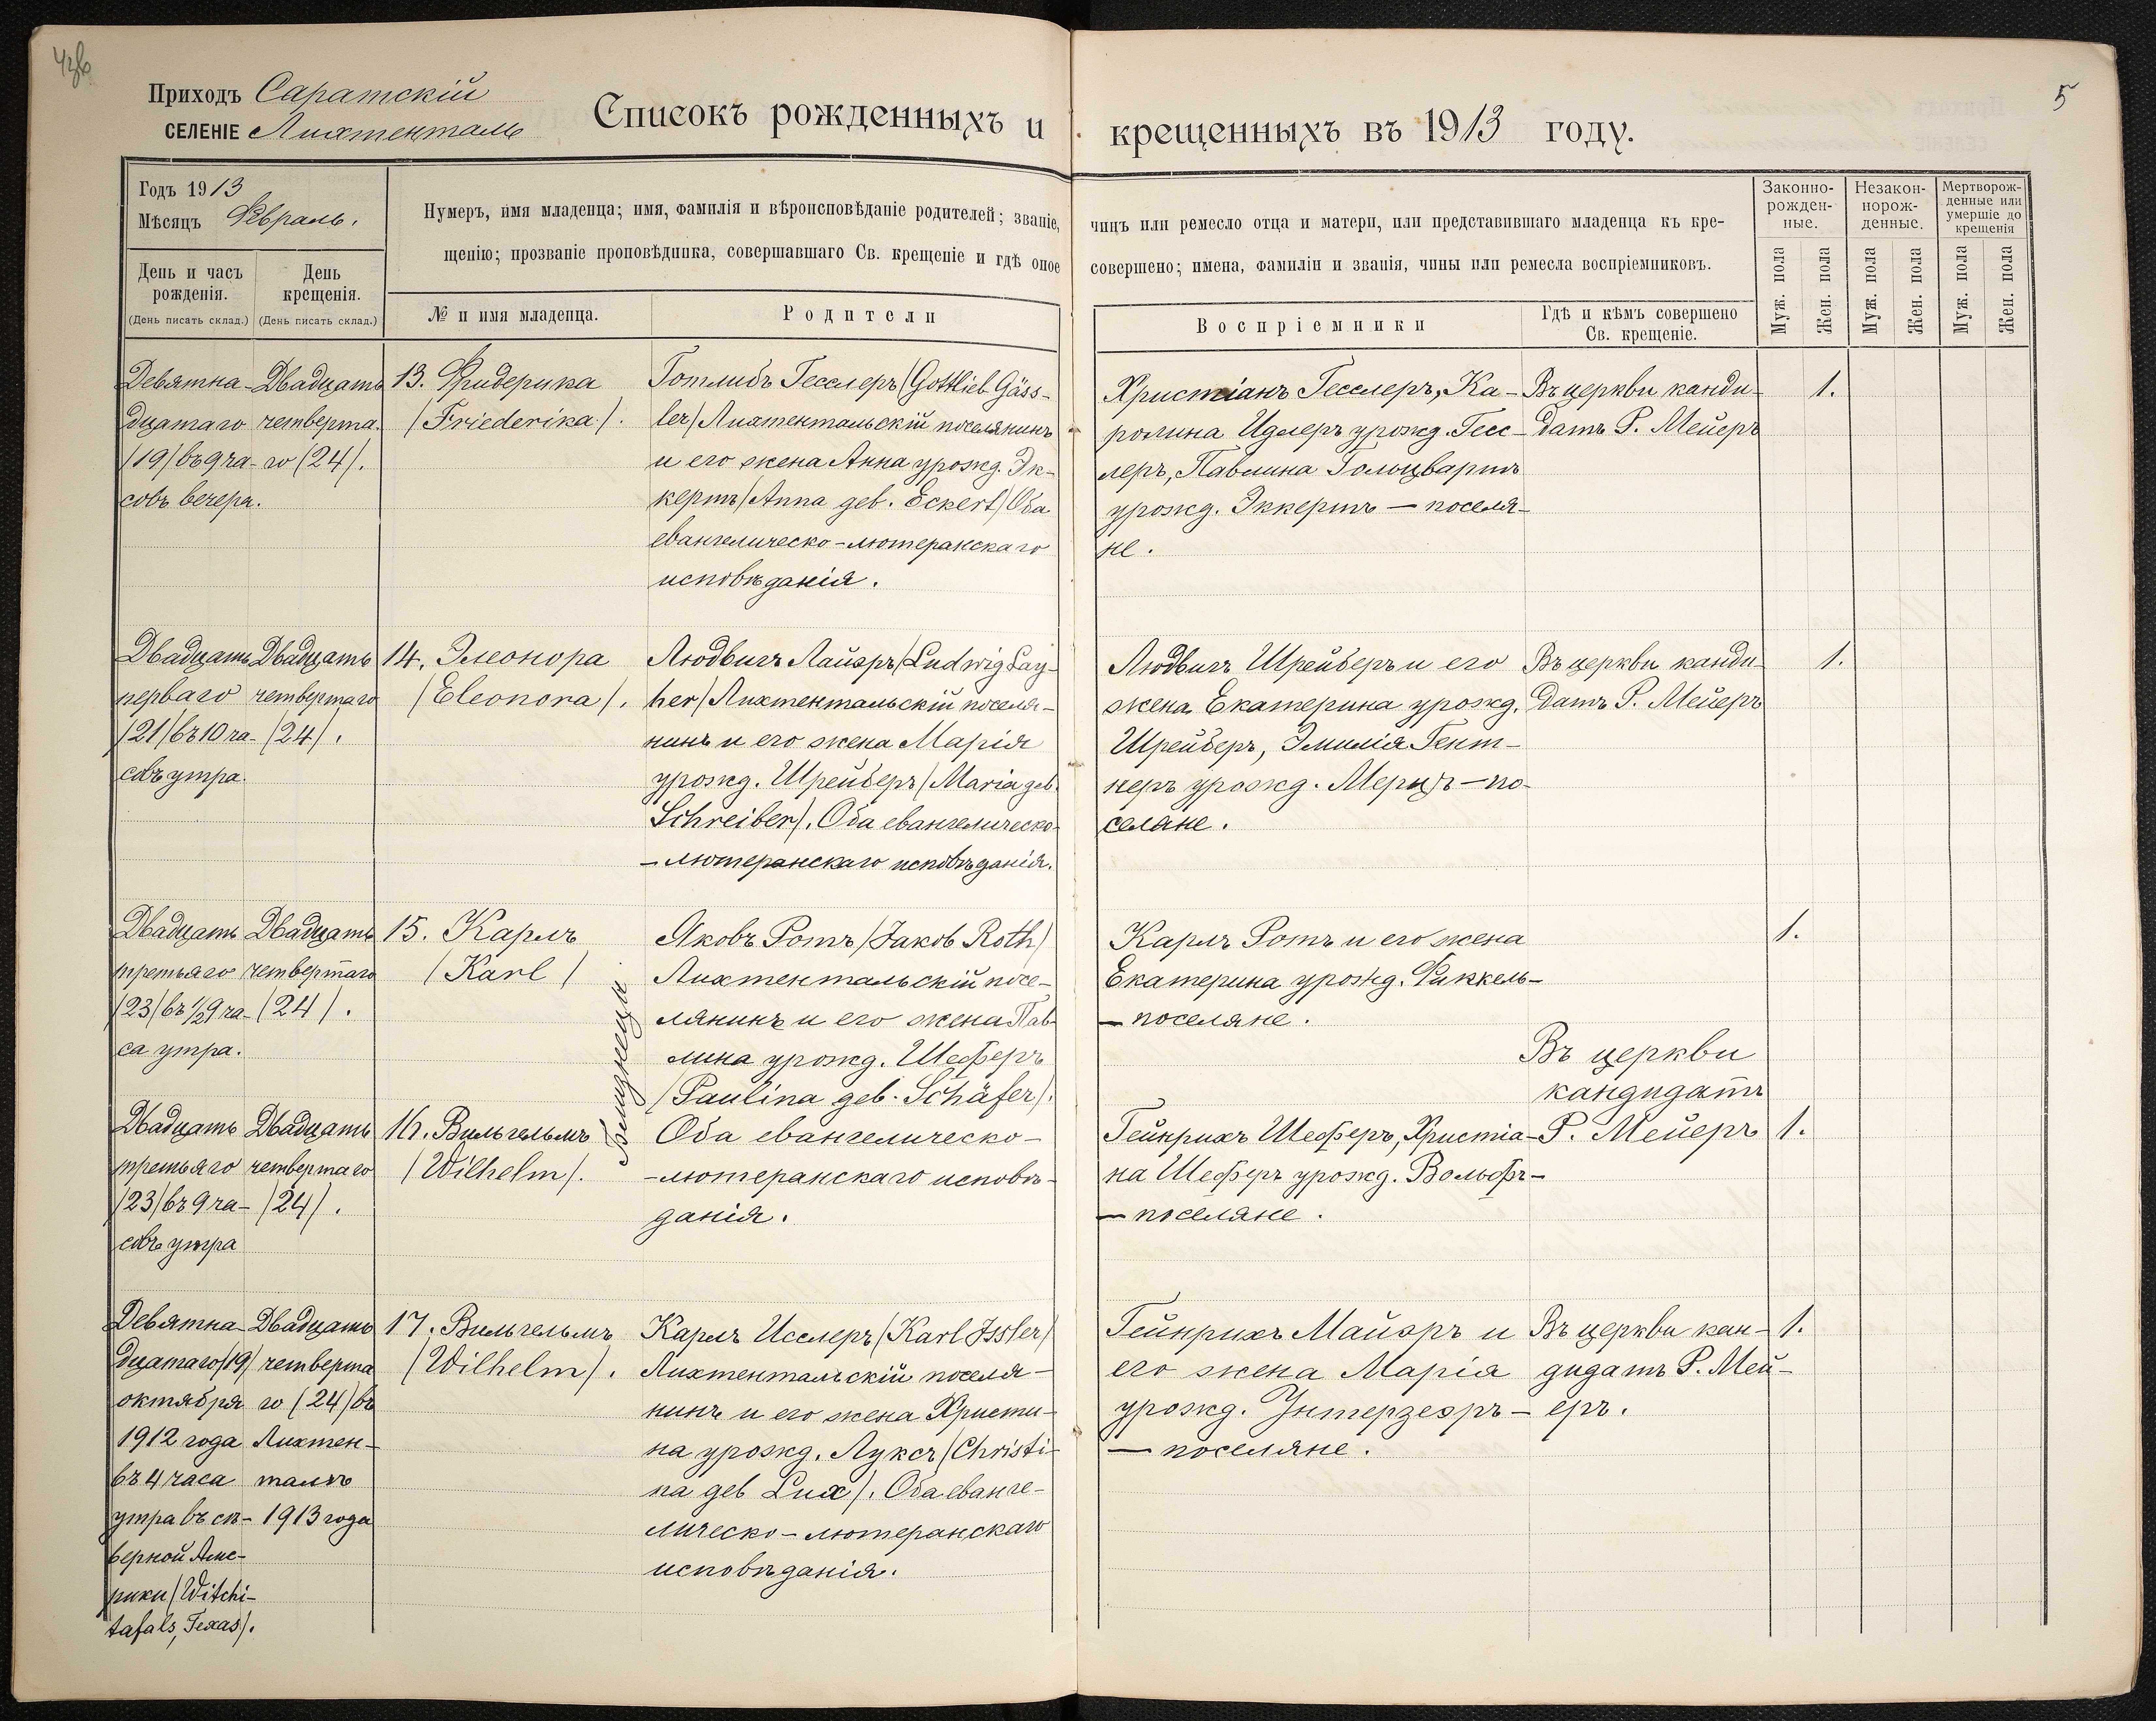 Приходъ Саратскій
СЕЛЕНІЕ Лихтенталь
Списокъ рожденныхъ и крещенныхъ въ 1913 году.
5
Годъ 1913
Мѣсяцъ Февраль.
День и часъ рожденія.
(День писать склад.)
День крещенія.
(День писать склад.)
Нумеръ, имя младенца; имя, фамилія и вѣроисповѣданіе родителей; званіе, чинъ или ремесло отца и матери, или представившаго младенца къ кре-
щенію; прозваніе проповѣдника, совершавшаго Св. крещеніе и гдѣ оное совершено; имена, фамиліи и званія, чины или ремесла воспріемниковъ.
№ и имя младенца.
Родители
Воспріемники
Гдѣ и кѣмъ совершено
Св. крещеніе.
Законно-
рожден-
ные.
Незакон-
норож-
денные.
Мертворож-
денные или
умершіе до
крещенія
Муж. пола
Жен. пола
Муж. пола
Жен. пола
Муж. пола
Жен. пола
Девятна-
дцатаго
/19/ въ 9 ча-
совъ вечера.
Двадцать
четверта-
го (24/.
13. Фридерика
/Friederika/.
Готлибъ Гесслеръ/Gottlieb Gäss-
ler/Лихтентальскій поселянинъ
и его жена Анна урожд. Эк-
кертъ/Anna geb. Eckert/Оба
евангелическо-лютеранскаго
исповѣданія.
Христіанъ Гесслеръ, Ка-
ролина Идлеръ урожд. Гесс-
леръ, Павлина Гольцвартъ
урожд. Эккертъ — поселя-
не.
Въ церкви канди-
датъ Р. Мейеръ
1.
Двадцать
перваго
/21/въ 10 ча-
совъ утра.
Двадцать
четвертаго
(24/.
14. Элеонора
/Eleonora/.
Людвигъ Лайэръ/Ludwig Lay-
her/Лихтентальскій поселя-
нинъ и его жена Марія
урожд. Шрейберъ/Maria geb.
Schreiber/. Оба евангелическо-
-лютеранскаго исповѣданія.
Людвигъ Шрейберъ и его
жена Екатерина урожд.
Шрейберъ, Эмилія Гент-
неръ урожд. Мерцъ — по-
селяне.
Въ церкви канди-
датъ Р. Мейеръ
1.
Двадцать
третьяго
/23/въ ½9 ча-
са утра.
Двадцать
четвертаго
(24/.
15. Карлъ
/Karl/
близнецы
Яковъ Ротъ/Jakob Roth/
Лихтентальскій посе-
лянинъ и его жена Пав-
лина урожд. Шеферъ
/Paulina geb. Schäfer/.
Оба евангелическо-
-лютеранскаго исповѣ-
данія.
Карлъ Ротъ и его жена
Екатерина урожд. Фиккель-
— поселяне.
Въ церкви
кандидатъ
Р. Мейеръ
1.
Двадцать
третьяго
/23/въ 9 ча-
совъ утра
Двадцать
четвертаго
/24/.
16. Вильгельмъ
/Wilhelm/.
Гейнрихъ Шеферъ, Христіа-
на Шеферъ урожд. Вольфъ-
— поселяне.
1.
Девятна-
дцатаго/19/
октября
1912 года
въ 4 часа
утра въ сѣ-
верной Аме-
рики/Witchi-
tafals, Texas/.
Двадцать
четверта
го (24/въ
Лихтен-
талѣ
1913 года
17. Вильгельмъ
/Wilhelm/.
Карлъ Исслеръ/Karl Issler/
Лихтентальскій поселя-
нинъ и его жена Христи-
на урожд. Луксъ/Christi-
na geb Lux/. Оба еванге-
лическо-лютеранскаго
исповѣданія.
Гейнрихъ Майэръ и
его жена Марія
урожд. Унтерзеэръ —
— поселяне.
Въ церкви кан-
дидатъ Р. Мей-
еръ.
1.